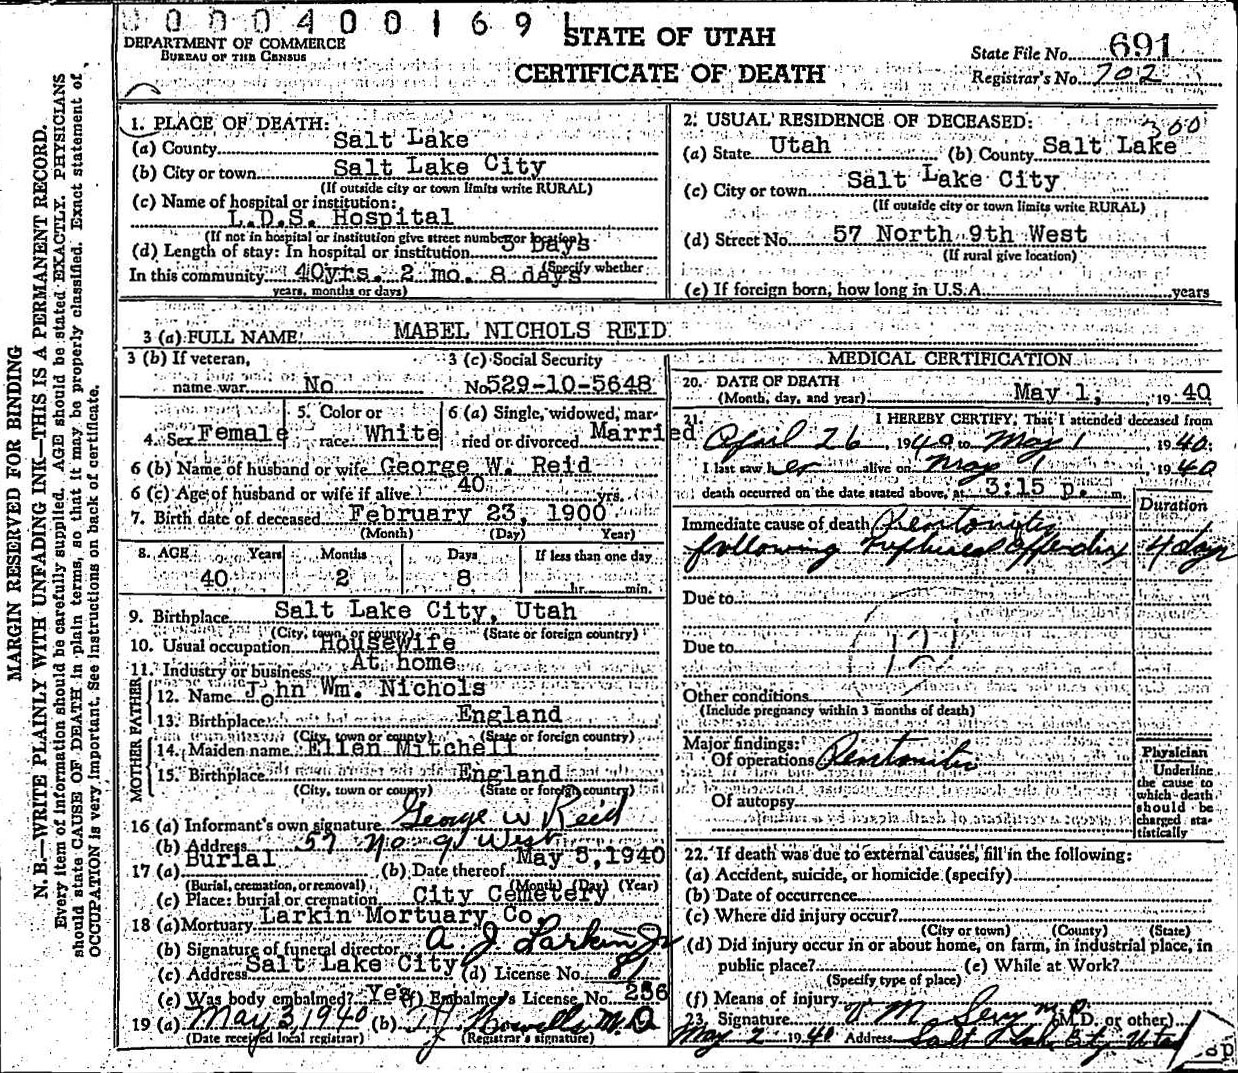 0000400169 1
STATE OF UTAH
CERTIFICATE OF DEATH
DEPARTMENT OF COMMERCE
BUREAU OF THE CENSUS
State File No. 691
Registrar's No. 702
MARGIN RESERVED FOR BINDING
N. B.—WRITE PLAINLY WITH UNFADING INK—THIS IS A PERMANENT RECORD.
Every item of information should be carefully supplied. AGE should be stated EXACTLY. PHYSICIANS
should state CAUSE OF DEATH in plain terms, so that it may be properly classified. Exact statement of
OCCUPATION is very important. See instructions on back of certificate.
1. PLACE OF DEATH:
(a) County Salt Lake
(b) City or town Salt Lake City
(If outside city or town limits write RURAL)
(c) Name of hospital or institution:
L.D.S. Hospital
(If not in hospital or institution give street number or location)
(d) Length of stay: In hospital or institution 5 Days
(Specify whether
In this community 40yrs. 2 mo. 8 days
years, months or days)
2. USUAL RESIDENCE OF DECEASED: 300
(a) State Utah (b) County Salt Lake
(c) City or town Salt Lake City
(If outside city or town limits write RURAL)
(d) Street No. 57 North 9th West
(If rural give location)
(e) If foreign born, how long in U.S.A. years
3 (a) FULL NAME MABEL NICHOLS REID
3 (b) If veteran,
name war No
3 (c) Social Security
No. 529-10-5648
4. Sex Female
5. Color or
race White
6 (a) Single, widowed, mar-
ried or divorced Married
6 (b) Name of husband or wife George W. Reid
6 (c) Age of husband or wife if alive 40 yrs.
7. Birth date of deceased February 23, 1900
(Month) (Day) Year)
8. AGE Years Months Days If less than one day
40 2 8 hr. min.
9. Birthplace Salt Lake City, Utah
(City, town, or county) (State or foreign country)
10. Usual occupation Housewife
11. Industry or business At home
FATHER
12. Name John Wm. Nichols
13. Birthplace England
(City, town or county) (State or foreign country)
MOTHER
14. Maiden name Ellen Mitchell
15. Birthplace England
(City, town or county) (State or foreign country)
16 (a) Informant's own signature George W Reid
(b) Address 57 No 9 West
17 (a) Burial (b) Date thereof May 5, 1940
(Burial, cremation, or removal) (Month) (Day) (Year)
(c) Place: burial or cremation City Cemetery
18 (a) Mortuary Larkin Mortuary Co.
(b) Signature of funeral director A J Larkin Jr
(c) Address Salt Lake City (d) License No. 81
(e) Was body embalmed? Yes (f) Embalmer's License No. 256
19 (a) May 3, 1940 (b) Howells M.D
(Date received local registrar) (Registrar's signature)
MEDICAL CERTIFICATION
20. DATE OF DEATH
(Month, day, and year) May 1, 19 40
21. I HEREBY CERTIFY, That I attended deceased from
April 26, 1940 to May 1 19 40.
I last saw her alive on May 1 19 40
death occurred on the date stated above, at 3:15 p. m.
Duration
Immediate cause of death Peritonitis
following ruptured appendix 4 days
Due to
Due to
121
Other conditions
(Include pregnancy within 3 months of death)
Major findings:
Of operations Peritonitis
Of autopsy
Physician
Underline
the cause to
which death
should be
charged sta-
tistically
22. If death was due to external causes, fill in the following:
(a) Accident, suicide, or homicide (specify)
(b) Date of occurrence
(c) Where did injury occur?
(City or town) (County) (State)
(d) Did injury occur in or about home, on farm, in industrial place, in
public place? (e) While at Work?
(Specify type of place)
(f) Means of injury
23. Signature M (M.D. or other)
May 2 19 40 Address Salt Lake City Utah